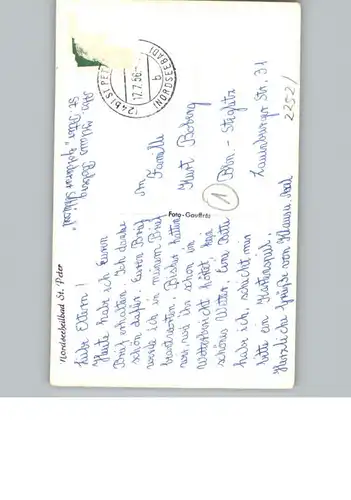 Nordseeheilbad St. Peter
Liebe Eltern!
Heute habe ich Euren
Brief erhalten. Ich danke
schön dafür. Euren Brief
werde ich in meinem Brief
beantworten. Bisher hatten
wir, wie ihr schon im
Wetterbericht hörtet, kein
schönes Wetter. Eine Bitte
habe ich, schickt mir
bitte ein Kartenspiel.
Herzliche Grüße von Klaus
Foto - Gauffritz
(24b) ST. PETER
(NORDSEEBAD)
12.7.56
b
St. Peter
An
Familie
Kurt Bobing
1
Bln. - Steglitz
Lauenburger Str. 31
2252/